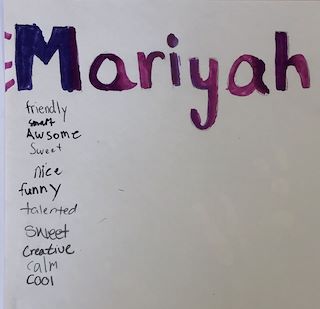 Mariyah
friendly
smart
Awsome
Sweet
nice
funny
talented
sweet
creative
calm
cool